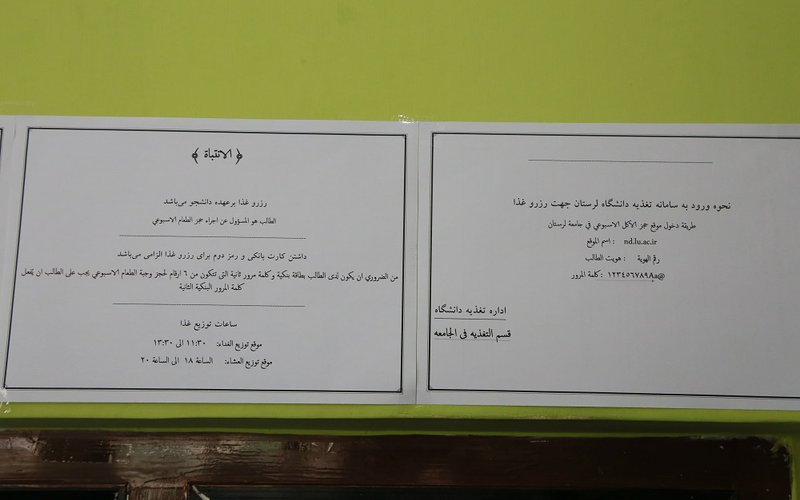 ﴿ الانتباة ﴾
رزرو غذا برعهده دانشجو می‌باشد
الطالب هو المسؤول عن اجراء حجز الطعام الاسبوعي
داشتن کارت بانکی و رمز دوم برای رزرو غذا الزامی می‌باشد
من الضروري ان يكون لدى الطالب بطاقة بنكية وكلمة مرور ثانية التى تتكون من ٦ ارقام لحجز وجبة الطعام الاسبوعي يجب على الطالب ان يُفعل
كلمة المرور البنكية الثانية
ساعات توزیع غذا
موقع توزيع الغداء: ١١:٣٠ الى ١٣:٣٠
موقع توزيع العشاء: الساعة ١٨ الى الساعة ٢٠
نحوه ورود به سامانه تغذیه دانشگاه لرستان جهت رزرو غذا
طريقة دخول موقع حجز الأكل الاسبوعي في جامعة لرستان
اسم الموقع : nd.lu.ac.ir
رقم الهوية : هويت الطالب
كلمة المرور: ١٢٣٤٥٦٧٨٩Aa@
اداره تغذیه دانشگاه
قسم التغذيه فى الجامعه